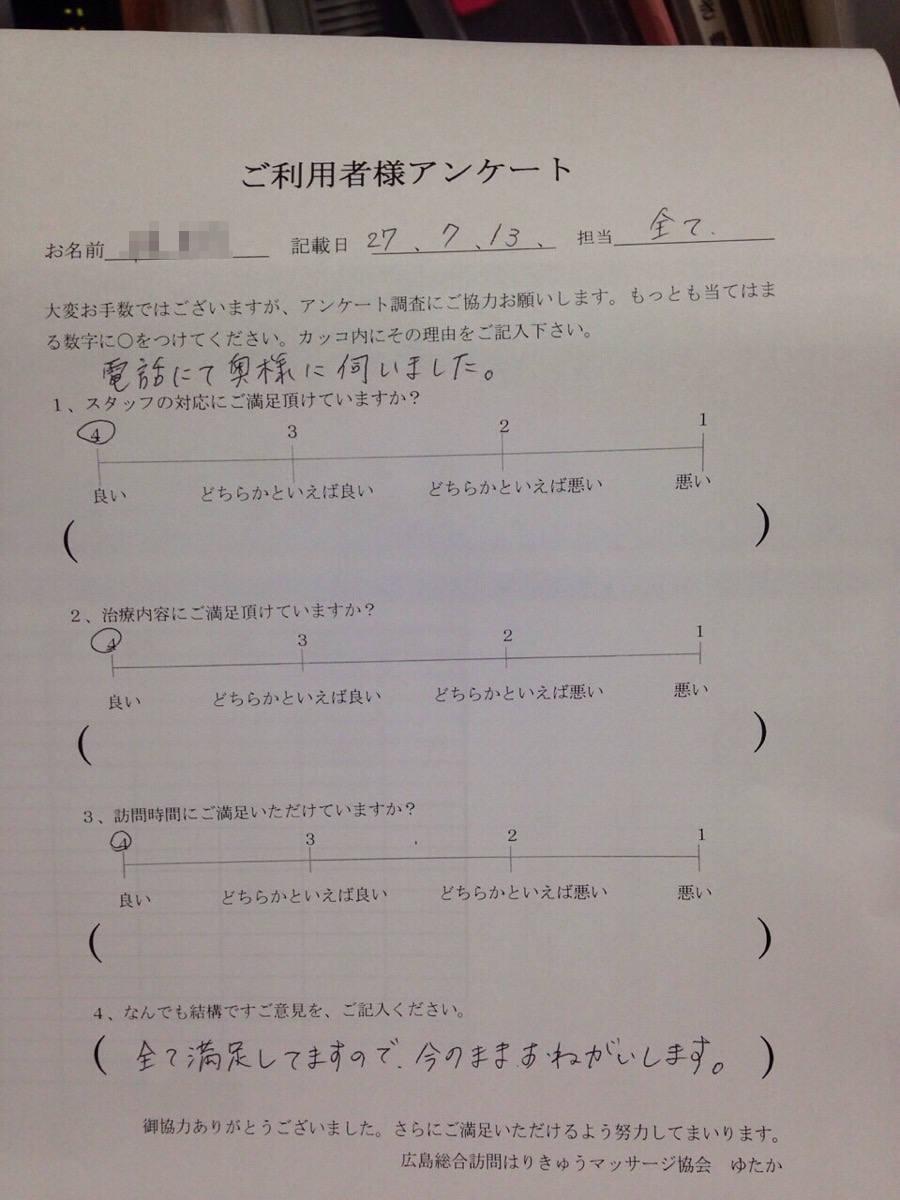 ご利用者様アンケート
お名前 記載日 27、7、13、 担当 全て.
大変お手数ではございますが、アンケート調査にご協力お願いします。もっとも当てはま
る数字に〇をつけてください。カッコ内にその理由をご記入下さい。
電話にて奥様に伺いました。
1、スタッフの対応にご満足頂けていますか？
4 3 2 1
良い どちらかといえば良い どちらかといえば悪い 悪い
( )
2、治療内容にご満足頂けていますか？
4 3 2 1
良い どちらかといえば良い どちらかといえば悪い 悪い
( )
3、訪問時間にご満足いただけていますか？
4 3 2 1
良い どちらかといえば良い どちらかといえば悪い 悪い
( )
4、なんでも結構ですご意見を、ご記入ください。
( 全て満足してますので、今のままおねがいします。 )
御協力ありがとうございました。さらにご満足いただけるよう努力してまいります。
広島総合訪問はりきゅうマッサージ協会 ゆたか